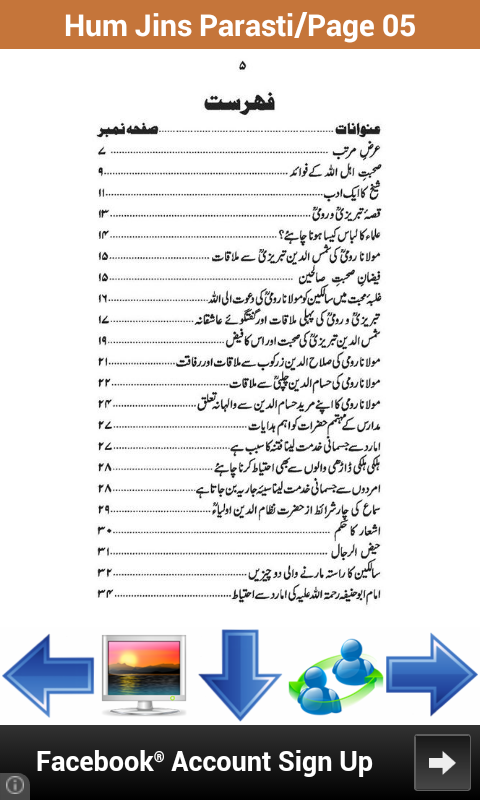 Hum Jins Parasti/Page 05
۵
فہرست
عنوانات ........ صفحہ نمبر
عرضِ مرتب ........ ۷
صحبتِ اہل اللہ کے فوائد ........ ۹
شیخ کا ایک ادب ........ ۱۱
قصۂ تبریزیؒ و رومیؒ ........ ۱۳
علماء کا لباس کیسا ہونا چاہئے؟ ........ ۱۴
مولانا رومیؒ کی شمس الدین تبریزیؒ سے ملاقات ........ ۱۵
فیضانِ صحبتِ صالحین ........ ۱۵
غلبۂ محبت میں سالکین کو مولانا رومیؒ کی دعوت الی اللہ ........ ۱۶
تبریزیؒ و رومیؒ کی پہلی ملاقات اور گفتگوئے عاشقانہ ........ ۱۷
شمس الدین تبریزیؒ کی صحبت اور اس کا فیض ........ ۱۹
مولانا رومی کی صلاح الدین زرکوب سے ملاقات اور رفاقت ........ ۲۱
مولانا رومی کی حسام الدین چلپیؒ سے ملاقات ........ ۲۲
مولانا رومی کا اپنے مرید حسام الدین سے والہانہ تعلق ........ ۲۴
مدارس کے مہتمم حضرات کو اہم ہدایات ........ ۲۷
امارد سے جسمانی خدمت لینا فتنہ کا سبب ہے ........ ۲۷
ہلکی ہلکی ڈاڑھی والوں سے بھی احتیاط کرنا چاہئے ........ ۲۸
امردوں سے جسمانی خدمت لینا سیئہ جاریہ بن جاتا ہے ........ ۲۸
سماع کی چار شرائط از حضرت نظام الدین اولیاءؒ ........ ۲۹
اشعار کا حکم ........ ۳۰
حیض الرجال ........ ۳۱
سالکین کا راستہ مارنے والی دو چیزیں ........ ۳۲
امام ابو حنیفہ رحمۃ اللہ علیہ کی امارد سے احتیاط ........ ۳۴
Facebook® Account Sign Up